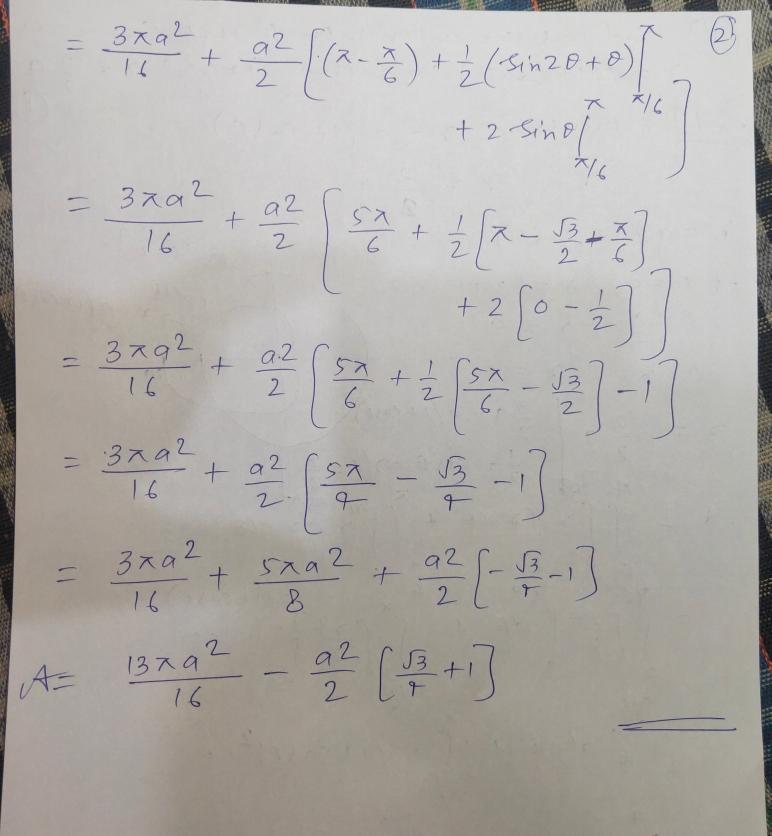 ②
= 3πa²/16 + a²/2 [(π - π/6) + 1/2 (sin2θ + θ)]_{π/6}^{π}
+ 2 sinθ|_{π/6}^{π} ]
= 3πa²/16 + a²/2 [ 5π/6 + 1/2 [π - √3/2 - π/6]
+ 2 [0 - 1/2] ]
= 3πa²/16 + a²/2 [ 5π/6 + 1/2 [5π/6 - √3/2] - 1 ]
= 3πa²/16 + a²/2 [ 5π/4 - √3/4 - 1 ]
= 3πa²/16 + 5πa²/8 + a²/2 [ -√3/4 - 1 ]
A = 13πa²/16 - a²/2 [ √3/4 + 1 ]